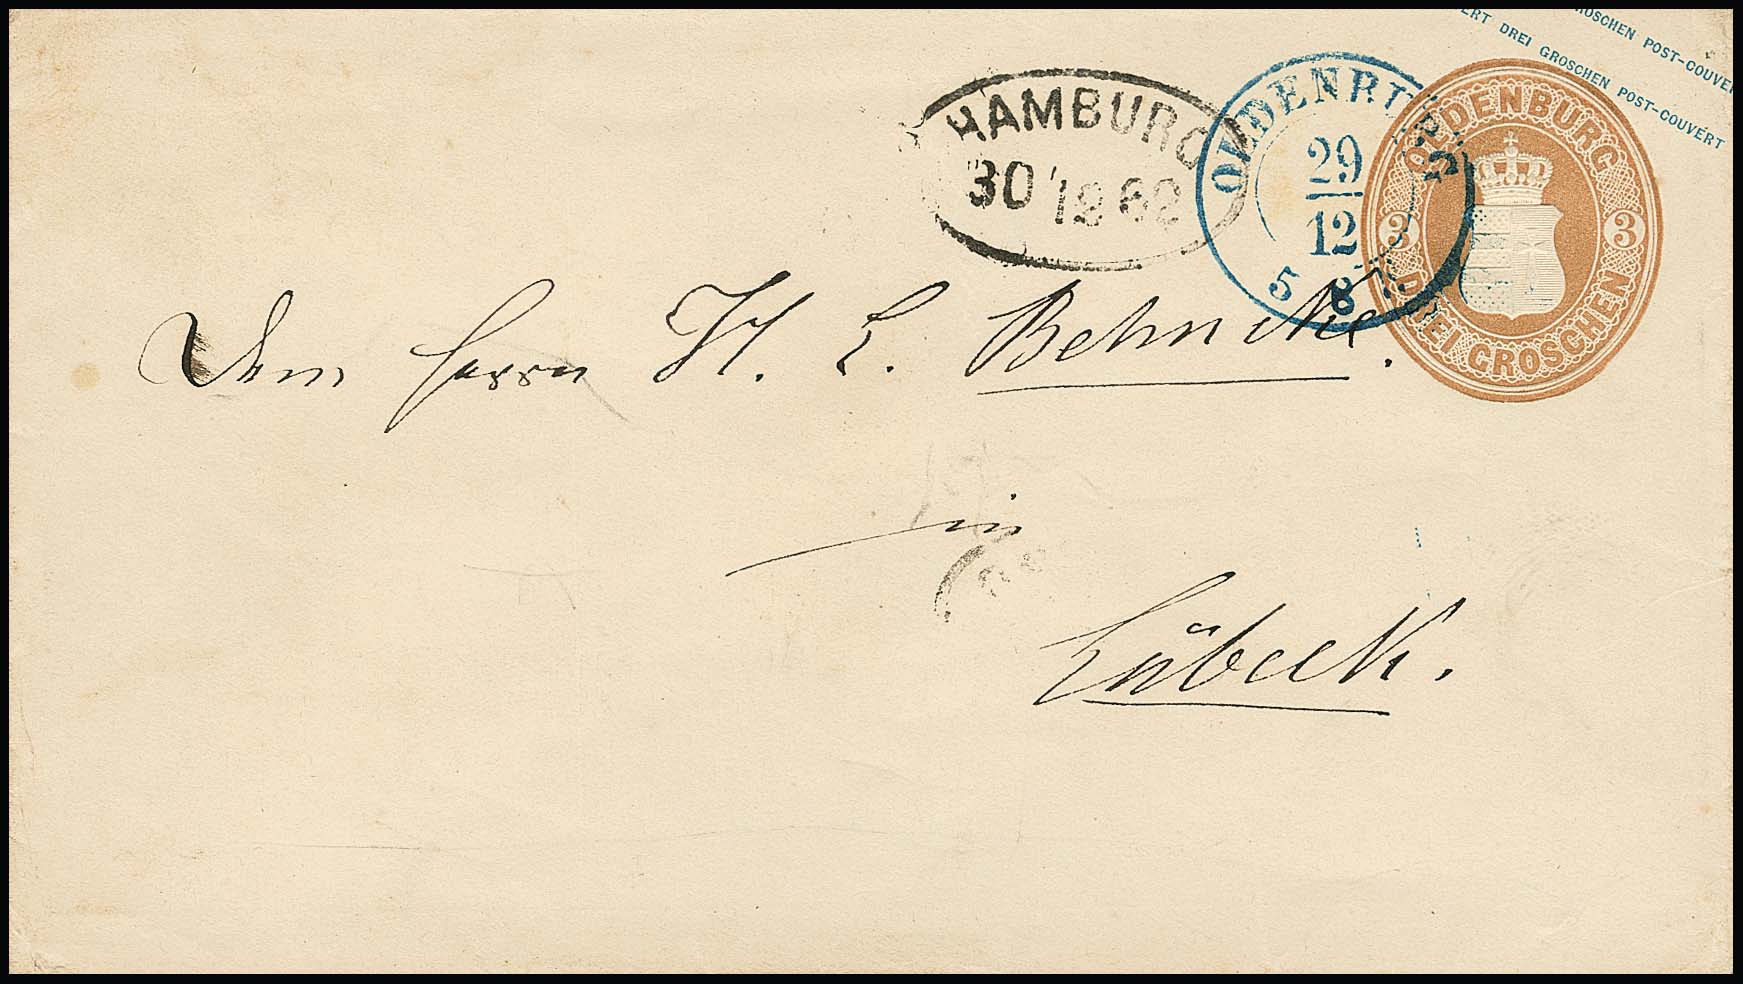 ROSCHEN POST-COUVE
ERT DREI GROSCHEN POST-COUVERT
HAMBURG
30 12 62
OLDENBURG
29
12
OLDENBURG
3 3
DREI GROSCHEN
Dem Herrn H. L. Behncke.
in
Lübeck.